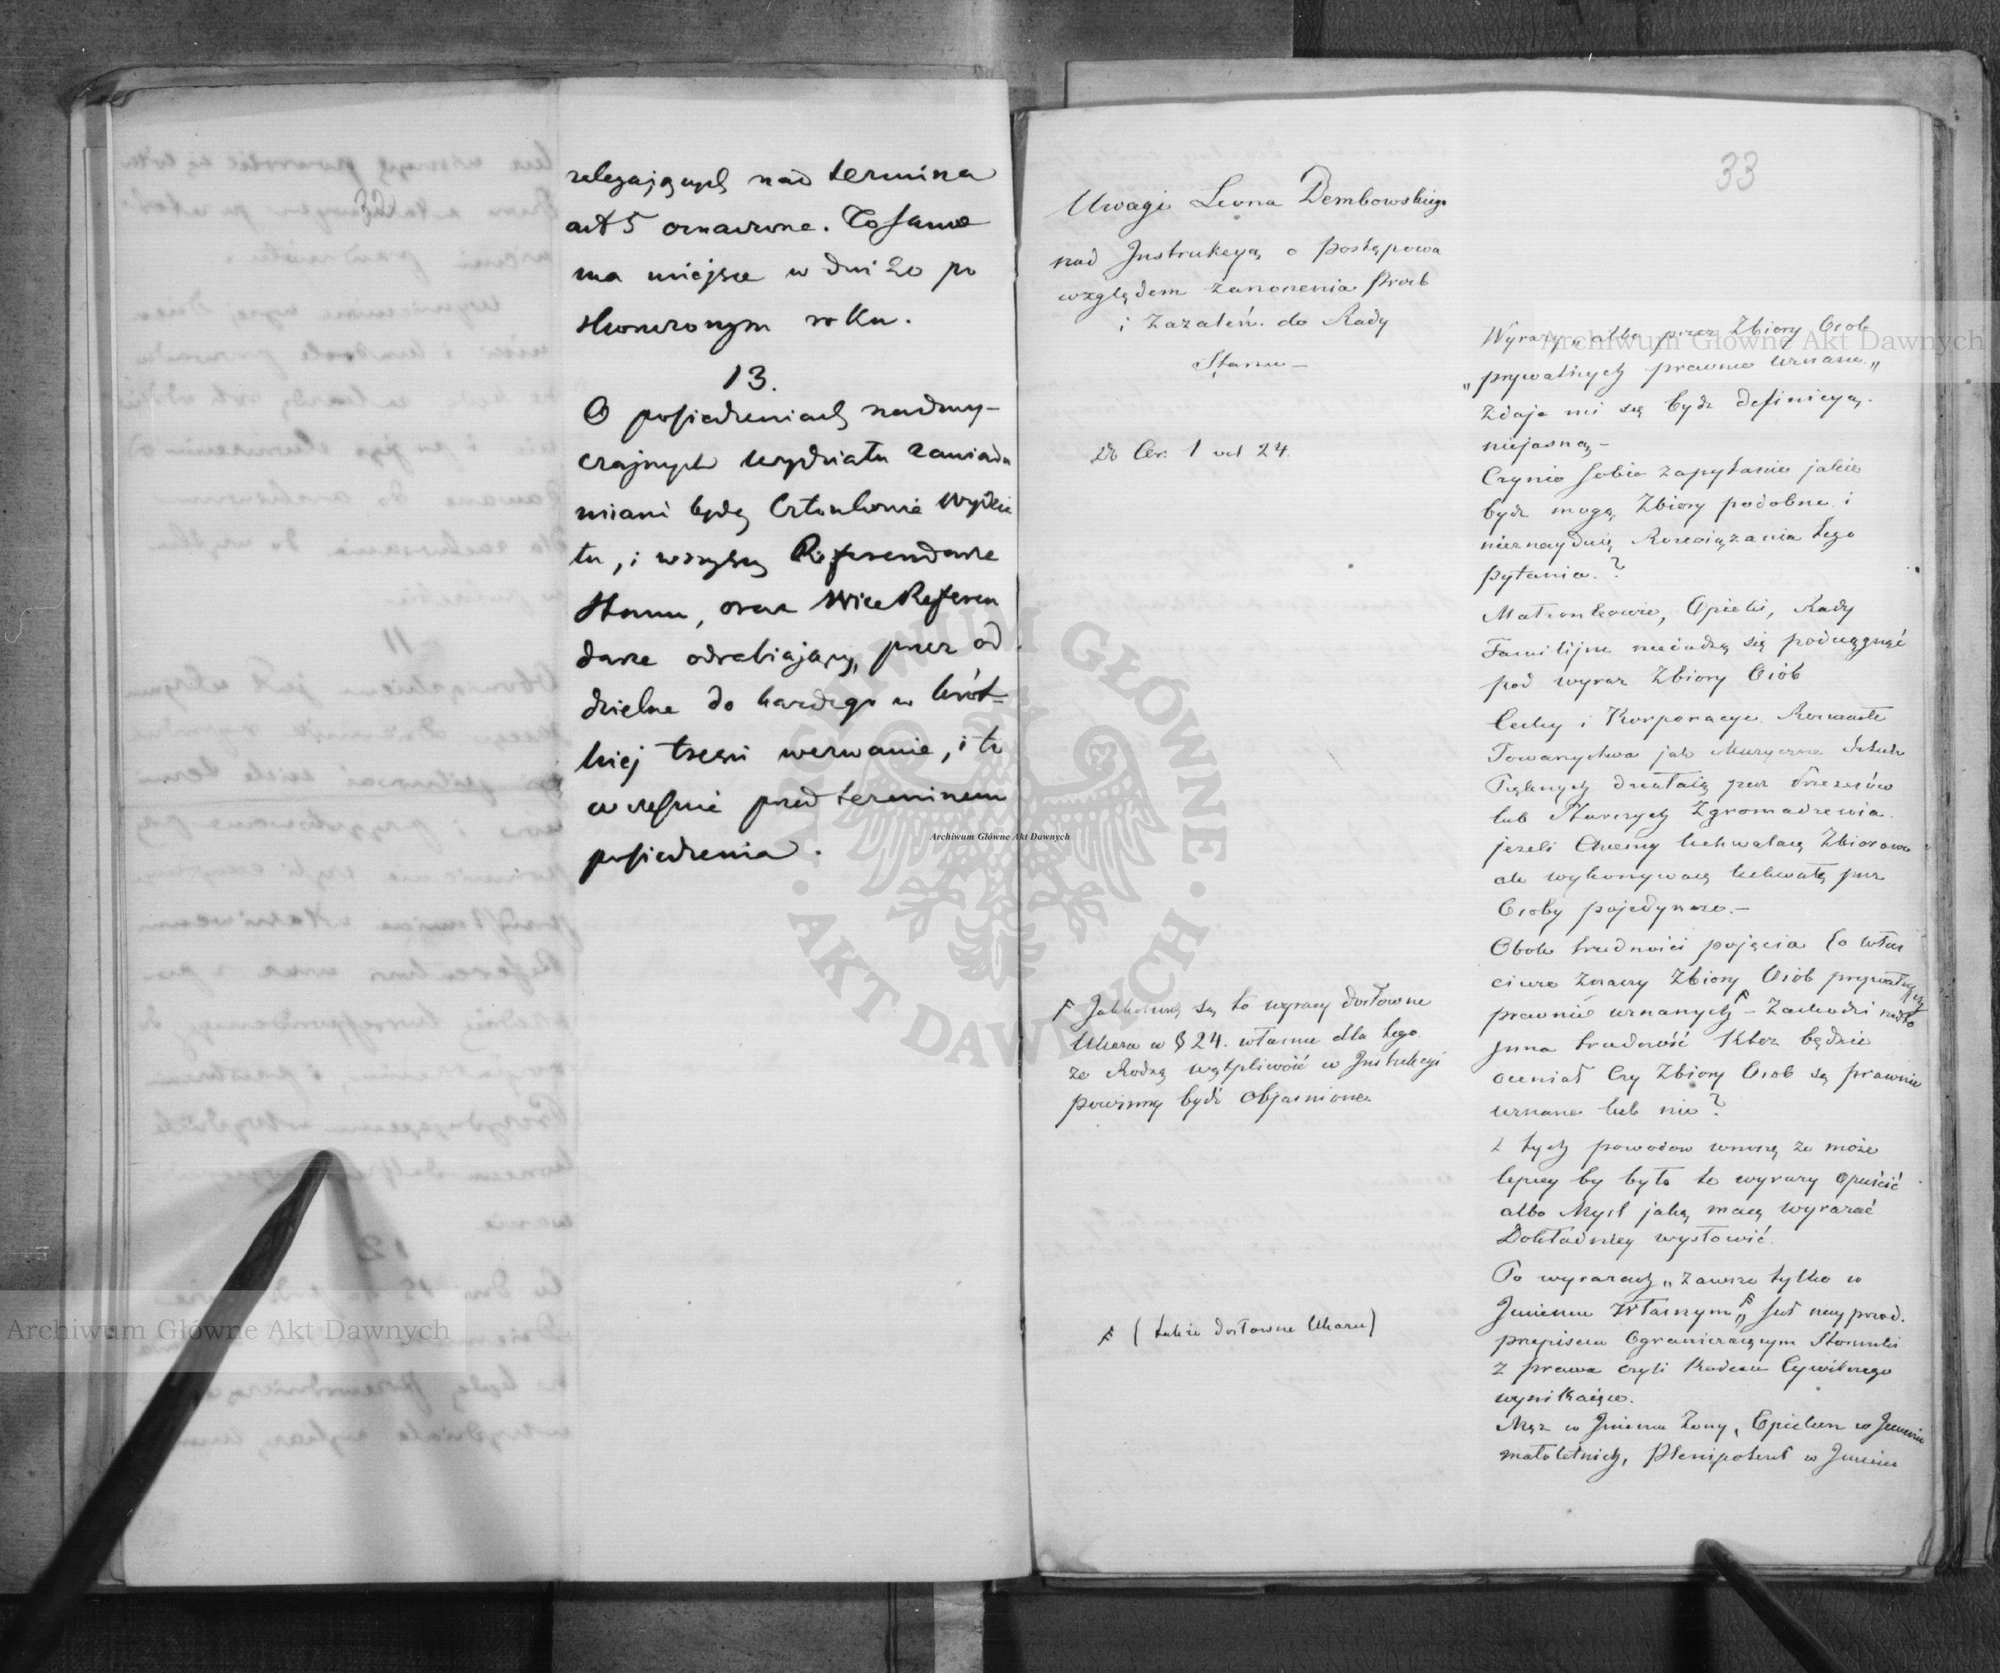 32
zalegających nad termina
art 5 oznaczone. To samo
ma miejsce w dni 20 po
skończonym roku.
13.
O posiedzeniach nadzwy-
czajnych wydziału zawiado
mieni będą Członkowie Wydzia
łu, i wszyscy Referendarze
Stanu, oraz Wice Referen
darze odrabiający, przez od
dzielne do każdego w krót-
kiej treści wezwanie, i to
wcześnie przed terminem
posiedzenia.
33
Uwagi Leona Dembowskiego
nad Instrukcyą o postępowa
względem zanoszenia Prośb
i Zażaleń do Rady
Stanu –
Do Ar. 1 ad 24.
F Jakkolwiek są to wyrazy dosłowne
Ukazu w § 24. właśnie dla tego
że Rodzą wątpliwość w Instrukcyi
powinny bydź Objaśnione
F (także dosłowne Ukazu)
Wyrazy „albo przez Zbiory Osób
„prywatnych prawnie uznane„
Zdaje mi się bydź definicyą
niejasną –
Czynię sobie zapytanie jakie
bydź mogą Zbiory podobne i
nieznayduię Rozwiązania tego
pytania.?
Małżonkowie, Opieki, Rady
Familijne niedadzą się podciągnąć
pod wyraz Zbiory Osób
Cechy i Korporacye Rozmaite
Towarzystwa jak Muzyczne Sztuk
Pięknych działaią przez Prezesów
lub Starszych Zgromadzenia
jeżeli Chcemy uchwalaią Zbiorowo
ale wykonywaią uchwałę przez
Osoby pojedyncze. –
Obok trudności pojęcia Co właś
ciwie Znaczy Zbiory Osób prywatnych
prawnie uznanych F – Zachodzi nadto
Inna trudność Któż będzie
oceniał Czy Zbiory Osób są prawnie
uznane lub nie?
Z tych powodów wnoszę że może
lepiey by było te wyrazy Opuścić
albo Myśl jaką maią wyrażać
Dokładniey wysłowić.
Po wyrazach „zawsze tylko w
Imieniu Własnym„ F
przepisem Ograniczaiącym Stosunki
z prawa czyli Kodexu Cywilnego
wynikaiące.
Mąż w Imieniu Żony, Opiekun w Imieniu
małoletnich, Plenipotent w Imieniu
Archiwum Główne Akt Dawnych
Archiwum Główne Akt Dawnych
Archiwum Główne Akt Dawnych
ARCHIWUM GŁÓWNE • AKT DAWNYCH •